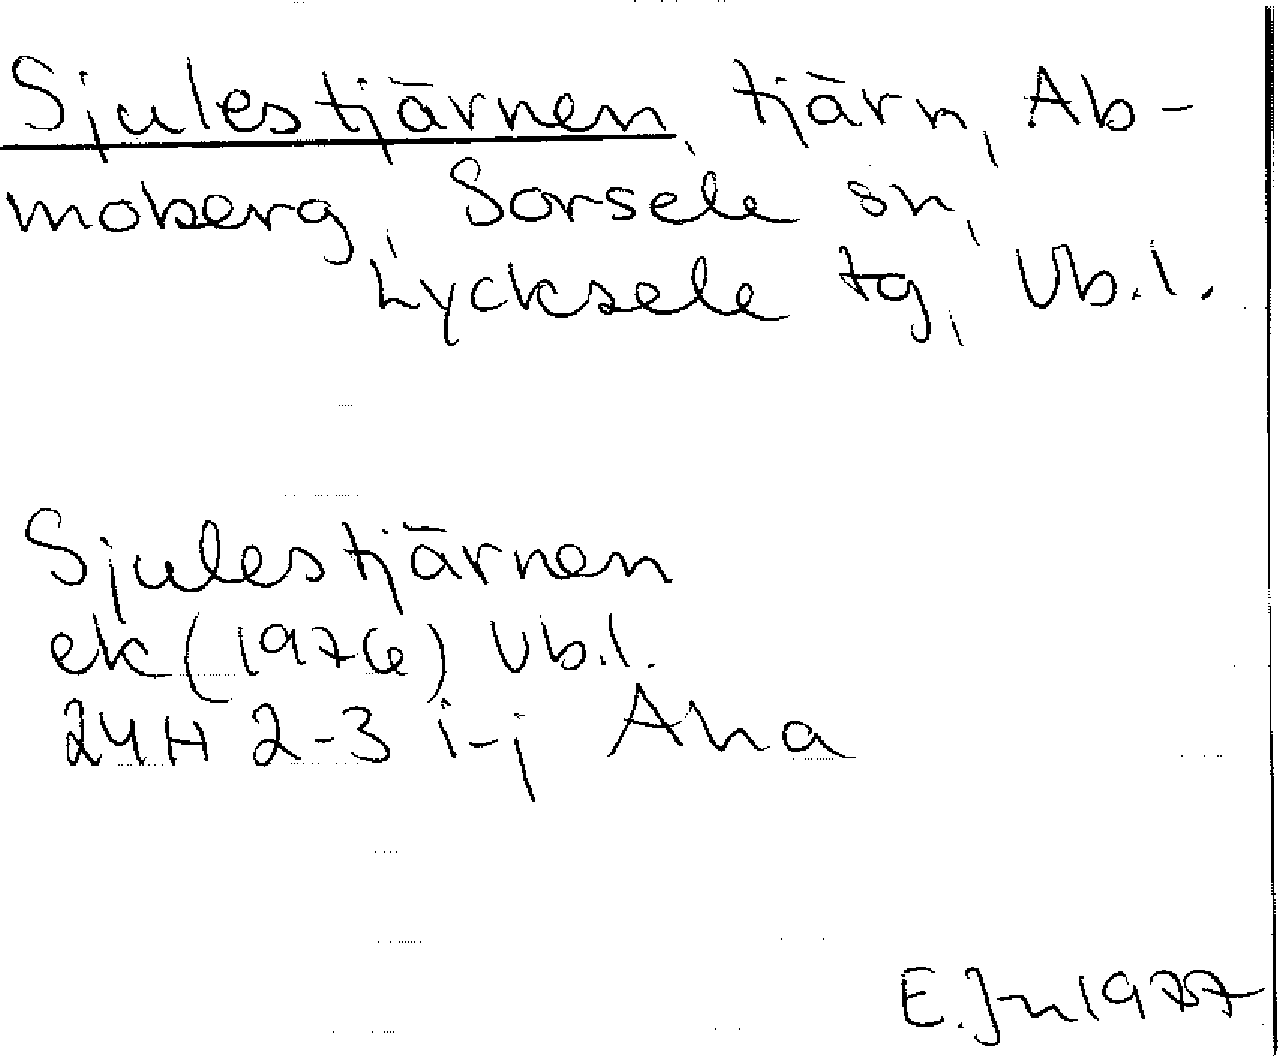 Sjulestjärnen, tjärn, Ab-
moberg, Sorsele sn,
Lycksele tg, Vb.l.
Sjulestjärnen
ek (1976) Vb.l.
24H 2-3 i-j Ana
E. Jn 1977